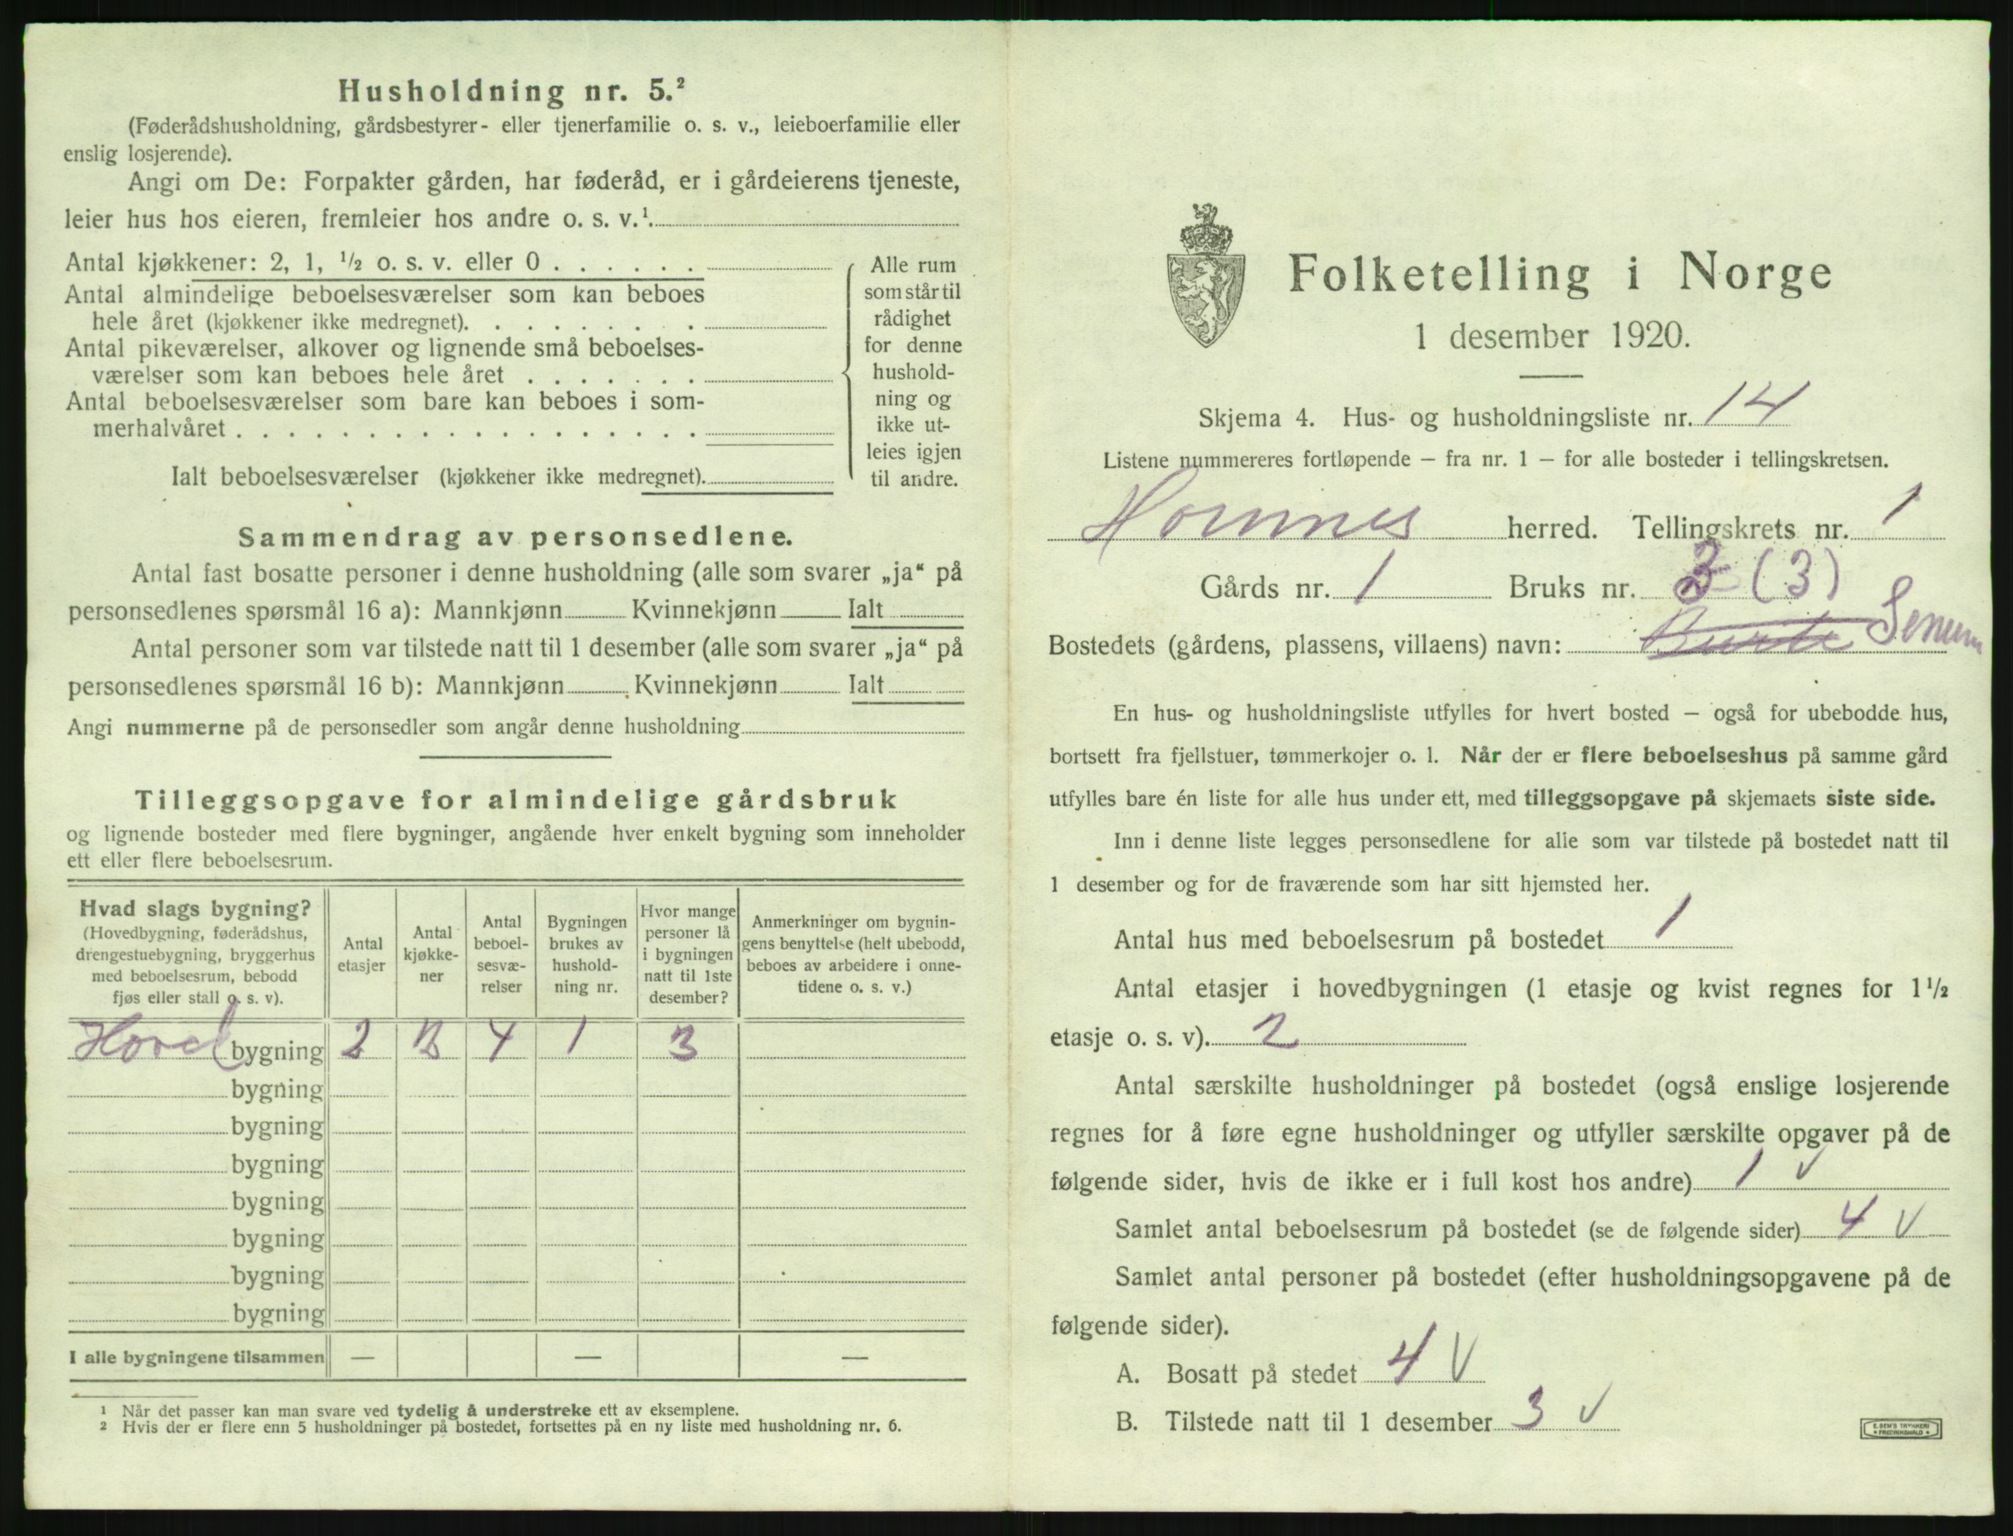 Husholdning nr. 5.²
(Føderådshusholdning, gårdsbestyrer- eller tjenerfamilie o. s. v., leieboerfamilie eller
enslig losjerende).
Angi om De: Forpakter gården, har føderåd, er i gårdeierens tjeneste,
leier hus hos eieren, fremleier hos andre o. s. v.¹
Antal kjøkkener: 2, 1, ½ o. s. v. eller 0 . . . . . .
Antal almindelige beboelsesværelser som kan beboes
hele året (kjøkkener ikke medregnet). . . . . . . .
Antal pikeværelser, alkover og lignende små beboelses-
værelser som kan beboes hele året . . . . . . .
Antal beboelsesværelser som bare kan beboes i som-
merhalvåret . . . . . . . . . . . . . . . . . .
Ialt beboelsesværelser (kjøkkener ikke medregnet).
Alle rum
som står til
rådighet
for denne
hushold-
ning og
ikke ut-
leies igjen
til andre.
Sammendrag av personsedlene.
Antal fast bosatte personer i denne husholdning (alle som svarer „ja“ på
personsedlenes spørsmål 16 a): Mannkjønn Kvinnekjønn Ialt
Antal personer som var tilstede natt til 1 desember (alle som svarer „ja“ på
personsedlenes spørsmål 16 b): Mannkjønn Kvinnekjønn Ialt
Angi nummerne på de personsedler som angår denne husholdning
Tilleggsopgave for almindelige gårdsbruk
og lignende bosteder med flere bygninger, angående hver enkelt bygning som inneholder
ett eller flere beboelsesrum.
Hvad slags bygning?
(Hovedbygning, føderådshus,
drengestuebygning, bryggerhus
med beboelsesrum, bebodd
fjøs eller stall o. s. v).
Antal
etasjer
Antal
kjøkke-
ner
Antal
beboel-
sesvæ-
relser
Bygningen
brukes av
hushold-
ning nr.
Hvor mange
personer lå
i bygningen
natt til 1ste
desember?
Anmerkninger om bygnin-
gens benyttelse (helt ubebodd,
beboes av arbeidere i onne-
tidene o. s. v.)
Hoved bygning 2 4 1 3
bygning
bygning
bygning
bygning
bygning
bygning
bygning
I alle bygningene tilsammen — — —
¹ Når det passer kan man svare ved tydelig å understreke ett av eksemplene.
² Hvis der er flere enn 5 husholdninger på bostedet, fortsettes på en ny liste med husholdning nr. 6.
Folketelling i Norge
1 desember 1920.
Skjema 4. Hus- og husholdningsliste nr. 14
Listene nummereres fortløpende – fra nr. 1 – for alle bosteder i tellingskretsen.
Hornnes herred. Tellingskrets nr. 1
Gårds nr. 1 Bruks nr. 3 (3)
Bostedets (gårdens, plassens, villaens) navn: Senum
En hus- og husholdningsliste utfylles for hvert bosted – også for ubebodde hus,
bortsett fra fjellstuer, tømmerkojer o. l. Når der er flere beboelseshus på samme gård
utfylles bare én liste for alle hus under ett, med tilleggsopgave på skjemaets siste side.
Inn i denne liste legges personsedlene for alle som var tilstede på bostedet natt til
1 desember og for de fraværende som har sitt hjemsted her.
Antal hus med beboelsesrum på bostedet 1
Antal etasjer i hovedbygningen (1 etasje og kvist regnes for 1½
etasje o. s. v). 2
Antal særskilte husholdninger på bostedet (også enslige losjerende
regnes for å føre egne husholdninger og utfyller særskilte opgaver på de
følgende sider, hvis de ikke er i full kost hos andre) 1 V
Samlet antal beboelsesrum på bostedet (se de følgende sider) 4 V
Samlet antal personer på bostedet (efter husholdningsopgavene på de
følgende sider).
A. Bosatt på stedet 4 V
B. Tilstede natt til 1 desember 3 V
E. SEM'S TRYKKERI
FREDRIKSHALD